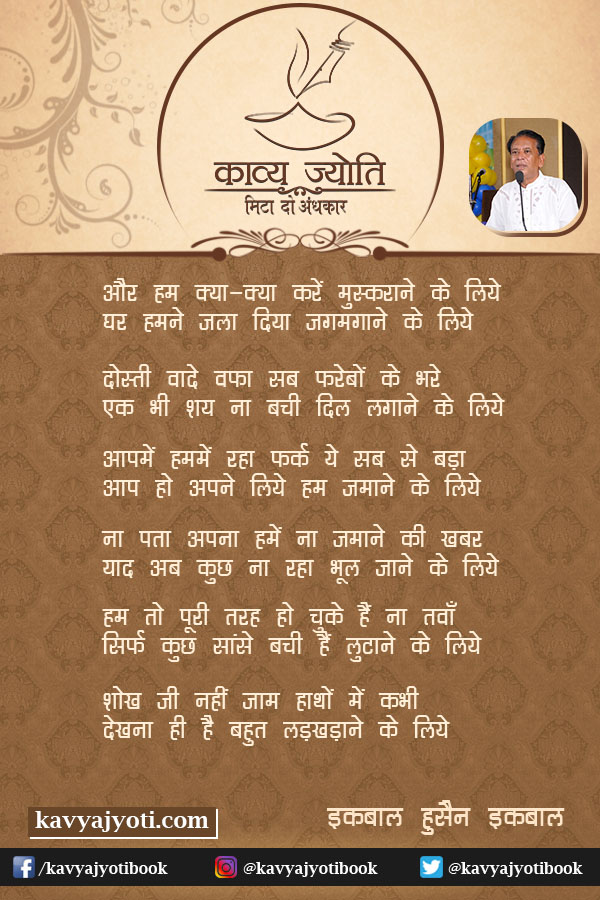 काव्य ज्योति
मिटा दो अंधकार
और हम क्या-क्या करें मुस्कराने के लिये
घर हमने जला दिया जगमगाने के लिये
दोस्ती वादे वफा सब फरेबों के भरे
एक भी शय ना बची दिल लगाने के लिये
आपमें हममें रहा फर्क ये सब से बड़ा
आप हो अपने लिये हम जमाने के लिये
ना पता अपना हमें ना जमाने की खबर
याद अब कुछ ना रहा भूल जाने के लिये
हम तो पूरी तरह हो चुके हैं ना तवाँ
सिर्फ कुछ सांसे बची हैं लुटाने के लिये
शोख जी नहीं जाम हाथों में कभी
देखना ही है बहुत लड़खड़ाने के लिये
इकबाल हुसैन इकबाल
kavyajyoti.com
/kavyajyotibook @kavyajyotibook @kavyajyotibook